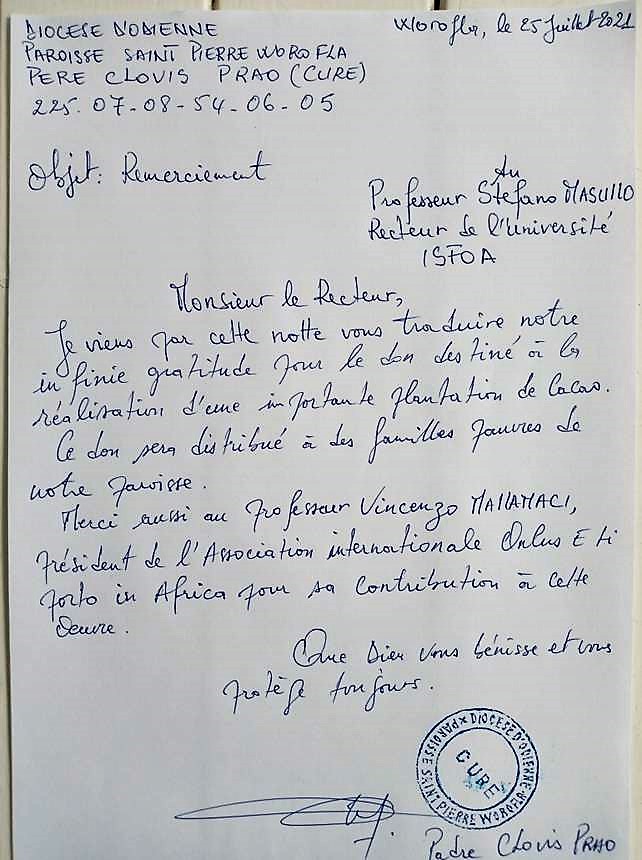 DIOCESE D'ODIENNE
Worofla, le 25 Juillet 2021
PAROISSE SAINT PIERRE WOROFLA
PERE CLOVIS PRAO (CURE)
225. 07-08-54-06-05
Objet: Remerciement
Au
Professeur Stefano MASULLO
Recteur de l'Université
ISFOA
Monsieur le Recteur,
Je viens par cette notte vous traduire notre
infinie gratitude pour le don destiné à la
réalisation d'une importante plantation de Cacao.
Ce don sera distribué à des familles pauvres de
notre paroisse.
Merci aussi au professeur Vincenzo MALLAMACI,
président de l'Association internationale Onlus E ti
porto in Africa pour sa contribution à cette
Oeuvre.
Que Dieu vous bénisse et vous
protège toujours.
DIOCESE D'ODIENNE
PAROISSE SAINT PIERRE WOROFLA
CURE
Padre Clovis PRAO